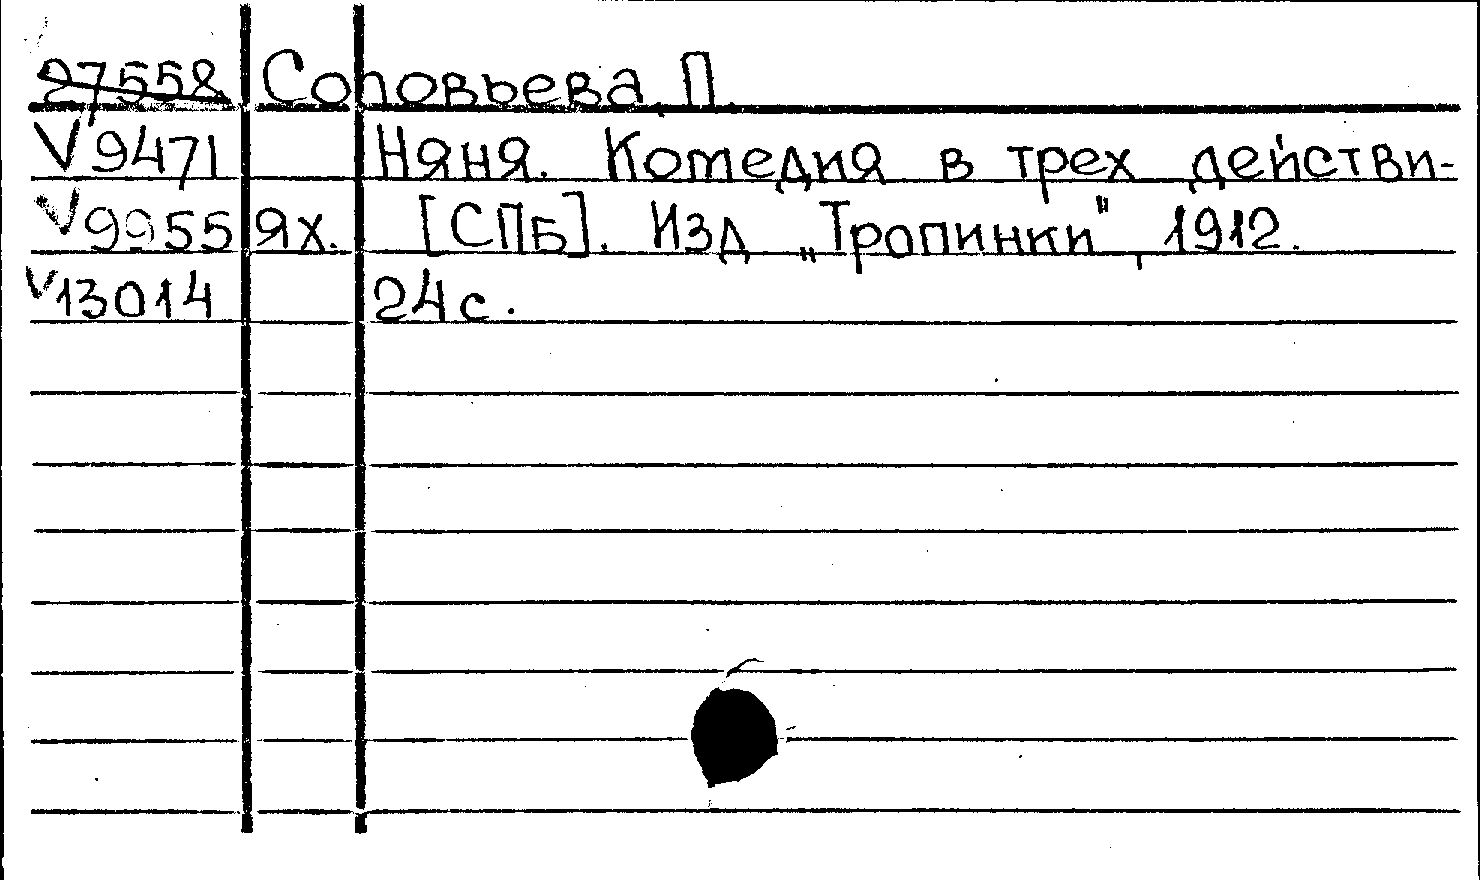 27558 Соловьева, П.
V 9471 Няня. Комедия в трех действи-
V 9955 ях. [СПБ]. Изд „Тропинки", 1912.
V 13014 24 с.